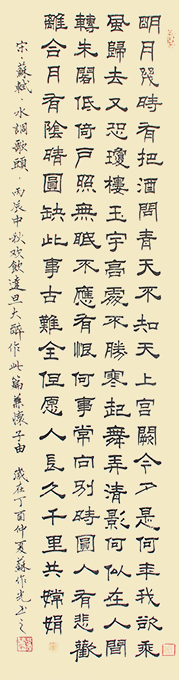 明月幾時有把酒問青天不知天上宮闕今夕是何年我欲乘
風歸去又恐瓊樓玉宇高處不勝寒起舞弄清影何似在人間
轉朱閣低倚戶照無眠不應有恨何事常向別時圓人有悲歡
離合月有陰晴圓缺此事古難全但愿人長久千里共嬋娟
宋·蘇軾·水調歌頭·丙辰中秋歡飲達旦大醉作此篇兼懷子由 歲在丁酉仲夏蘇作光书之